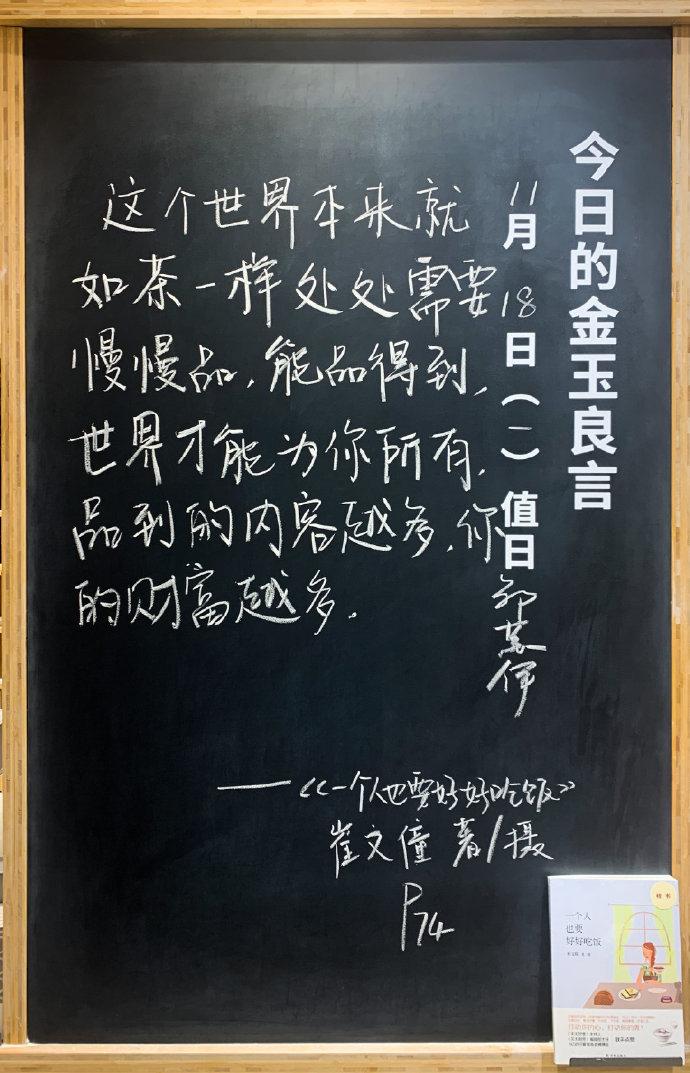 今日的金玉良言
11月18日(一)值日
这个世界本来就
如茶一样处处需要
慢慢品,能品得到,
世界才能为你所有,
品到的内容越多,你
的财富越多.
——《一个人也要好好吃饭》
崔文僮 著/摄
P74
一个人
也要
好好吃饭
打动你的心,打动你的胃!